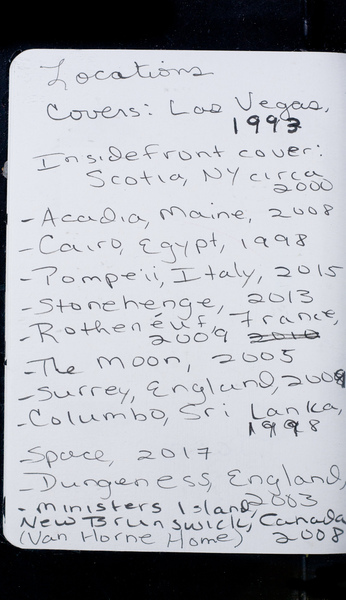 Locations
Covers: Las Vegas,
1993
Insidefront cover:
Scotia, NY circa
2000
- Acadia, Maine, 2008
- Cairo, Egypt, 1998
- Pompeii, Italy, 2015
- Stonehenge, 2013
- Rothenéuf France,
2009 2010
- The Moon, 2005
- Surrey, England, 2009
- Columbo, Sri Lanka,
1998
Space, 2017
- Dungeness, England,
2003
- Ministers Island
New Brunswick, Canada
(Van Horne Home) 2008